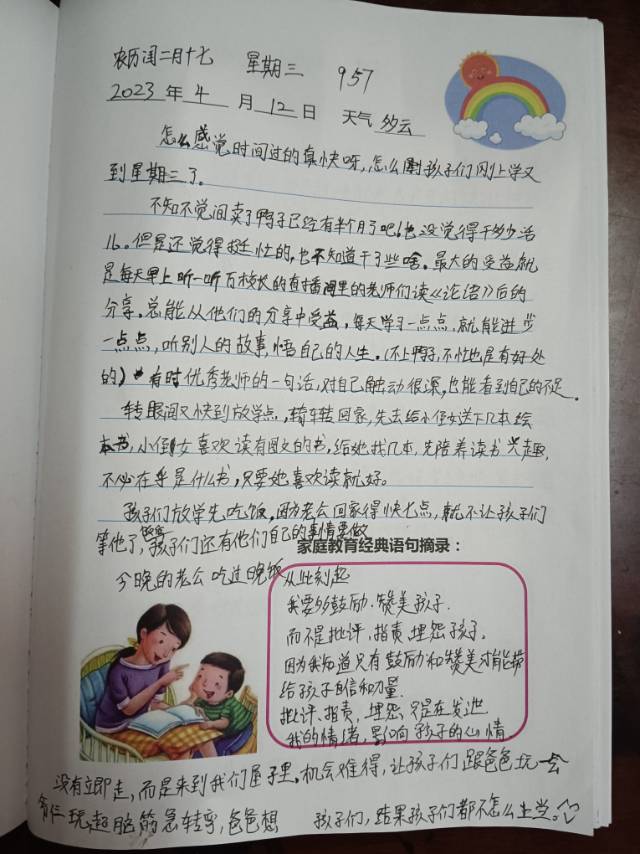 农历闰二月十七 星期三 957
2023年4月12日 天气多云
怎么感觉时间过的真快呀,怎么孩子们刚上学又
到星期三了。
不知不觉间卖了鸭子已经有半个月了吧!也没觉得干多少活
儿。但是还觉得挺忙的,也不知道干了些啥。最大的受益就
是每天早上听一听万校长的直播间里的老师们读《论语》后的
分享。总能从他们的分享中受益,每天学习一点点,就能进步
一点点,听别人的故事,悟自己的人生。(不上鸭子,不忙也是有好处
的)有时优秀老师的一句话,对自己触动很深,也能看到自己的不足。
转眼间又快到放学点,骑车转回家,先去给小侄女送下几本绘
本书,小侄女喜欢读有图文的书,给她找几本,先培养读书兴趣,
不必在乎是什么书,只要她喜欢读就好。
孩子们放学先吃饭,因为老公回家得快七点,就不让孩子们
等他了,孩子们还有他们自己的事情要做
家庭教育经典语句摘录:
今晚的老公吃过晚饭
从此刻起
我要多鼓励、赞美孩子.
而不是批评、指责、埋怨孩子。
因为我知道只有鼓励和赞美才能带
给孩子自信和力量.
批评、指责、埋怨、不是在发泄
我的情绪,影响孩子的心情
没有立即走,而是来到我们屋子里。机会难得,让孩子们跟爸爸玩一会
玩起脑筋急转弯,爸爸想 孩子们,结果孩子们都不怎么上当。